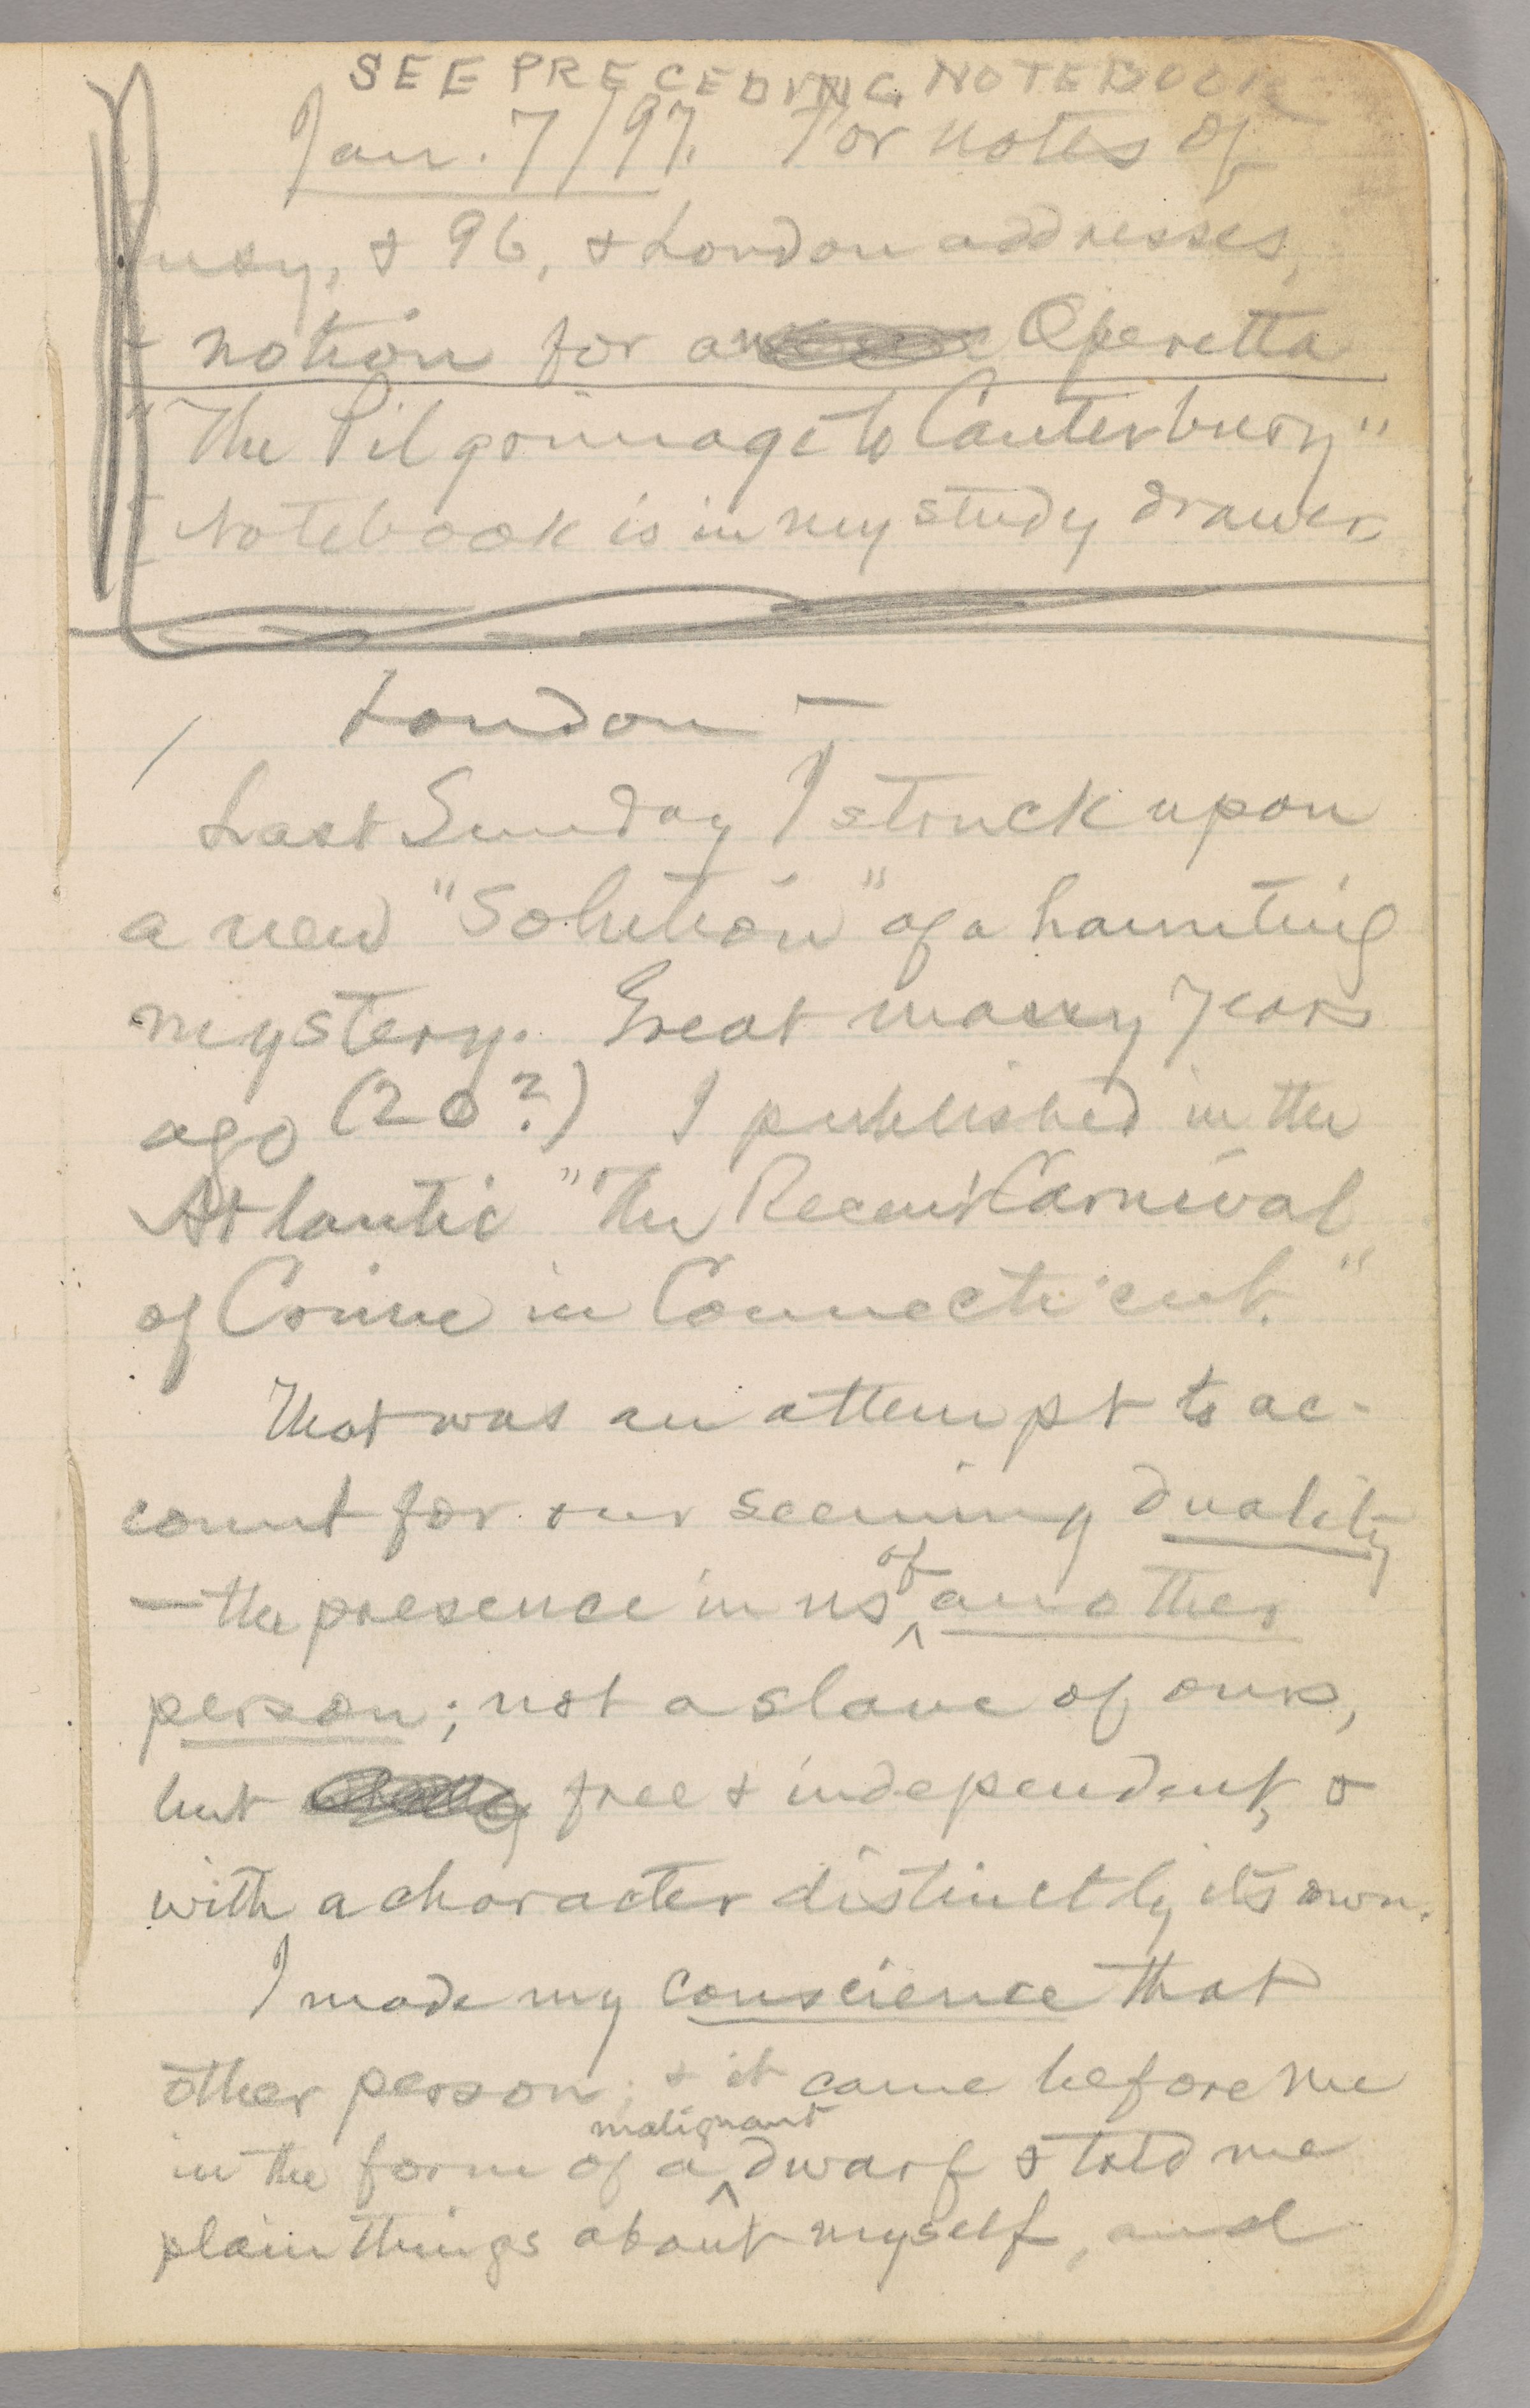 SEE PRECEDING NOTEBOOK
Jan. 7/97. For notes of
Susy, & 96, & London addresses,
& notion for an Operetta
"The Pilgrimage to Canterbury"
Notebook is in my study drawer
London —
Last Sunday I struck upon
a new "solution" of a haunting
mystery. Great many years
ago (20?) I published in the
Atlantic "The Recent Carnival
of Crime in Connecticut."
That was an attempt to ac-
count for our seeming duality
— the presence in us of another
person; not a slave of ours,
but free & independent, &
with a character distinctly its own.
I made my conscience that
other person, & it came before me
in the form of a malignant dwarf & told me
plain things about myself, and